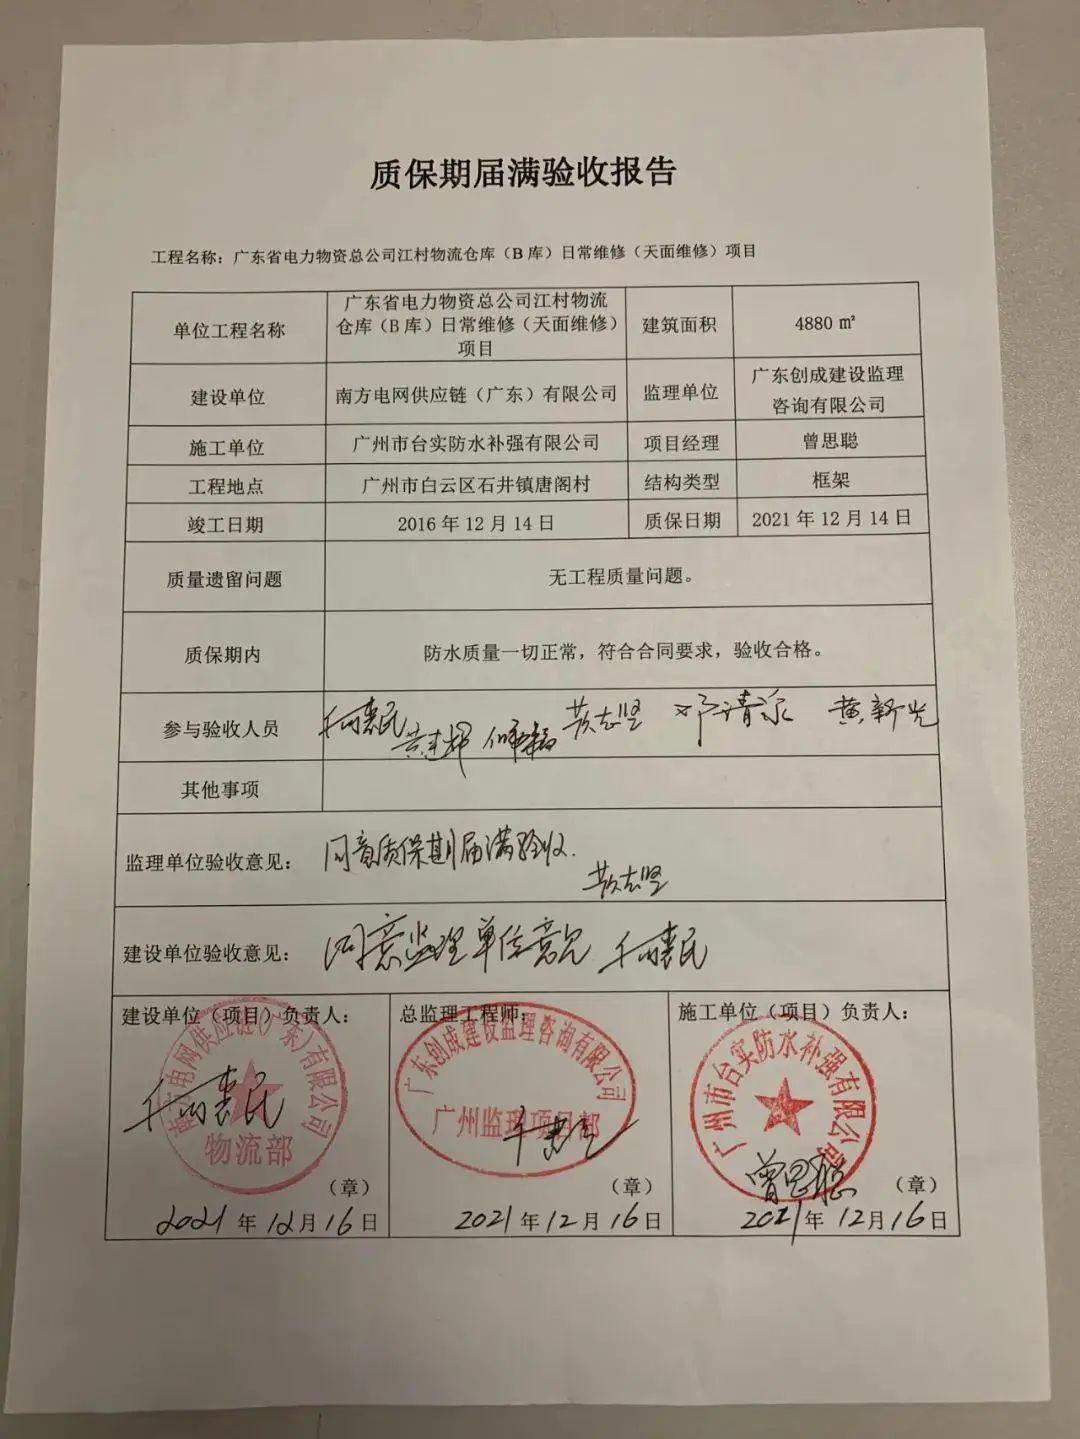 质保期届满验收报告
工程名称：广东省电力物资总公司江村物流仓库（B 库）日常维修（天面维修）项目
单位工程名称
广东省电力物资总公司江村物流
仓库（B 库）日常维修（天面维修）
项目
建筑面积
4880 ㎡
建设单位
南方电网供应链（广东）有限公司
监理单位
广东创成建设监理
咨询有限公司
施工单位
广州市台实防水补强有限公司
项目经理
曾思聪
工程地点
广州市白云区石井镇唐阁村
结构类型
框架
竣工日期
2016 年 12 月 14 日
质保日期
2021 年 12 月 14 日
质量遗留问题
无工程质量问题。
质保期内
防水质量一切正常，符合合同要求，验收合格。
参与验收人员
黄志坚
邓清泉
黄新光
其他事项
监理单位验收意见：
同意质保期届满验收.
黄志坚
建设单位验收意见：
同意监理单位意见
建设单位（项目）负责人：
南方电网供应链（广东）有限公司
物流部
（章）
2021 年 12 月 16 日
总监理工程师：
广东创成建设监理咨询有限公司
广州监理项目部
（章）
2021 年 12 月 16 日
施工单位（项目）负责人：
广州市台实防水补强有限公司
曾思聪
（章）
2021 年 12 月 16 日